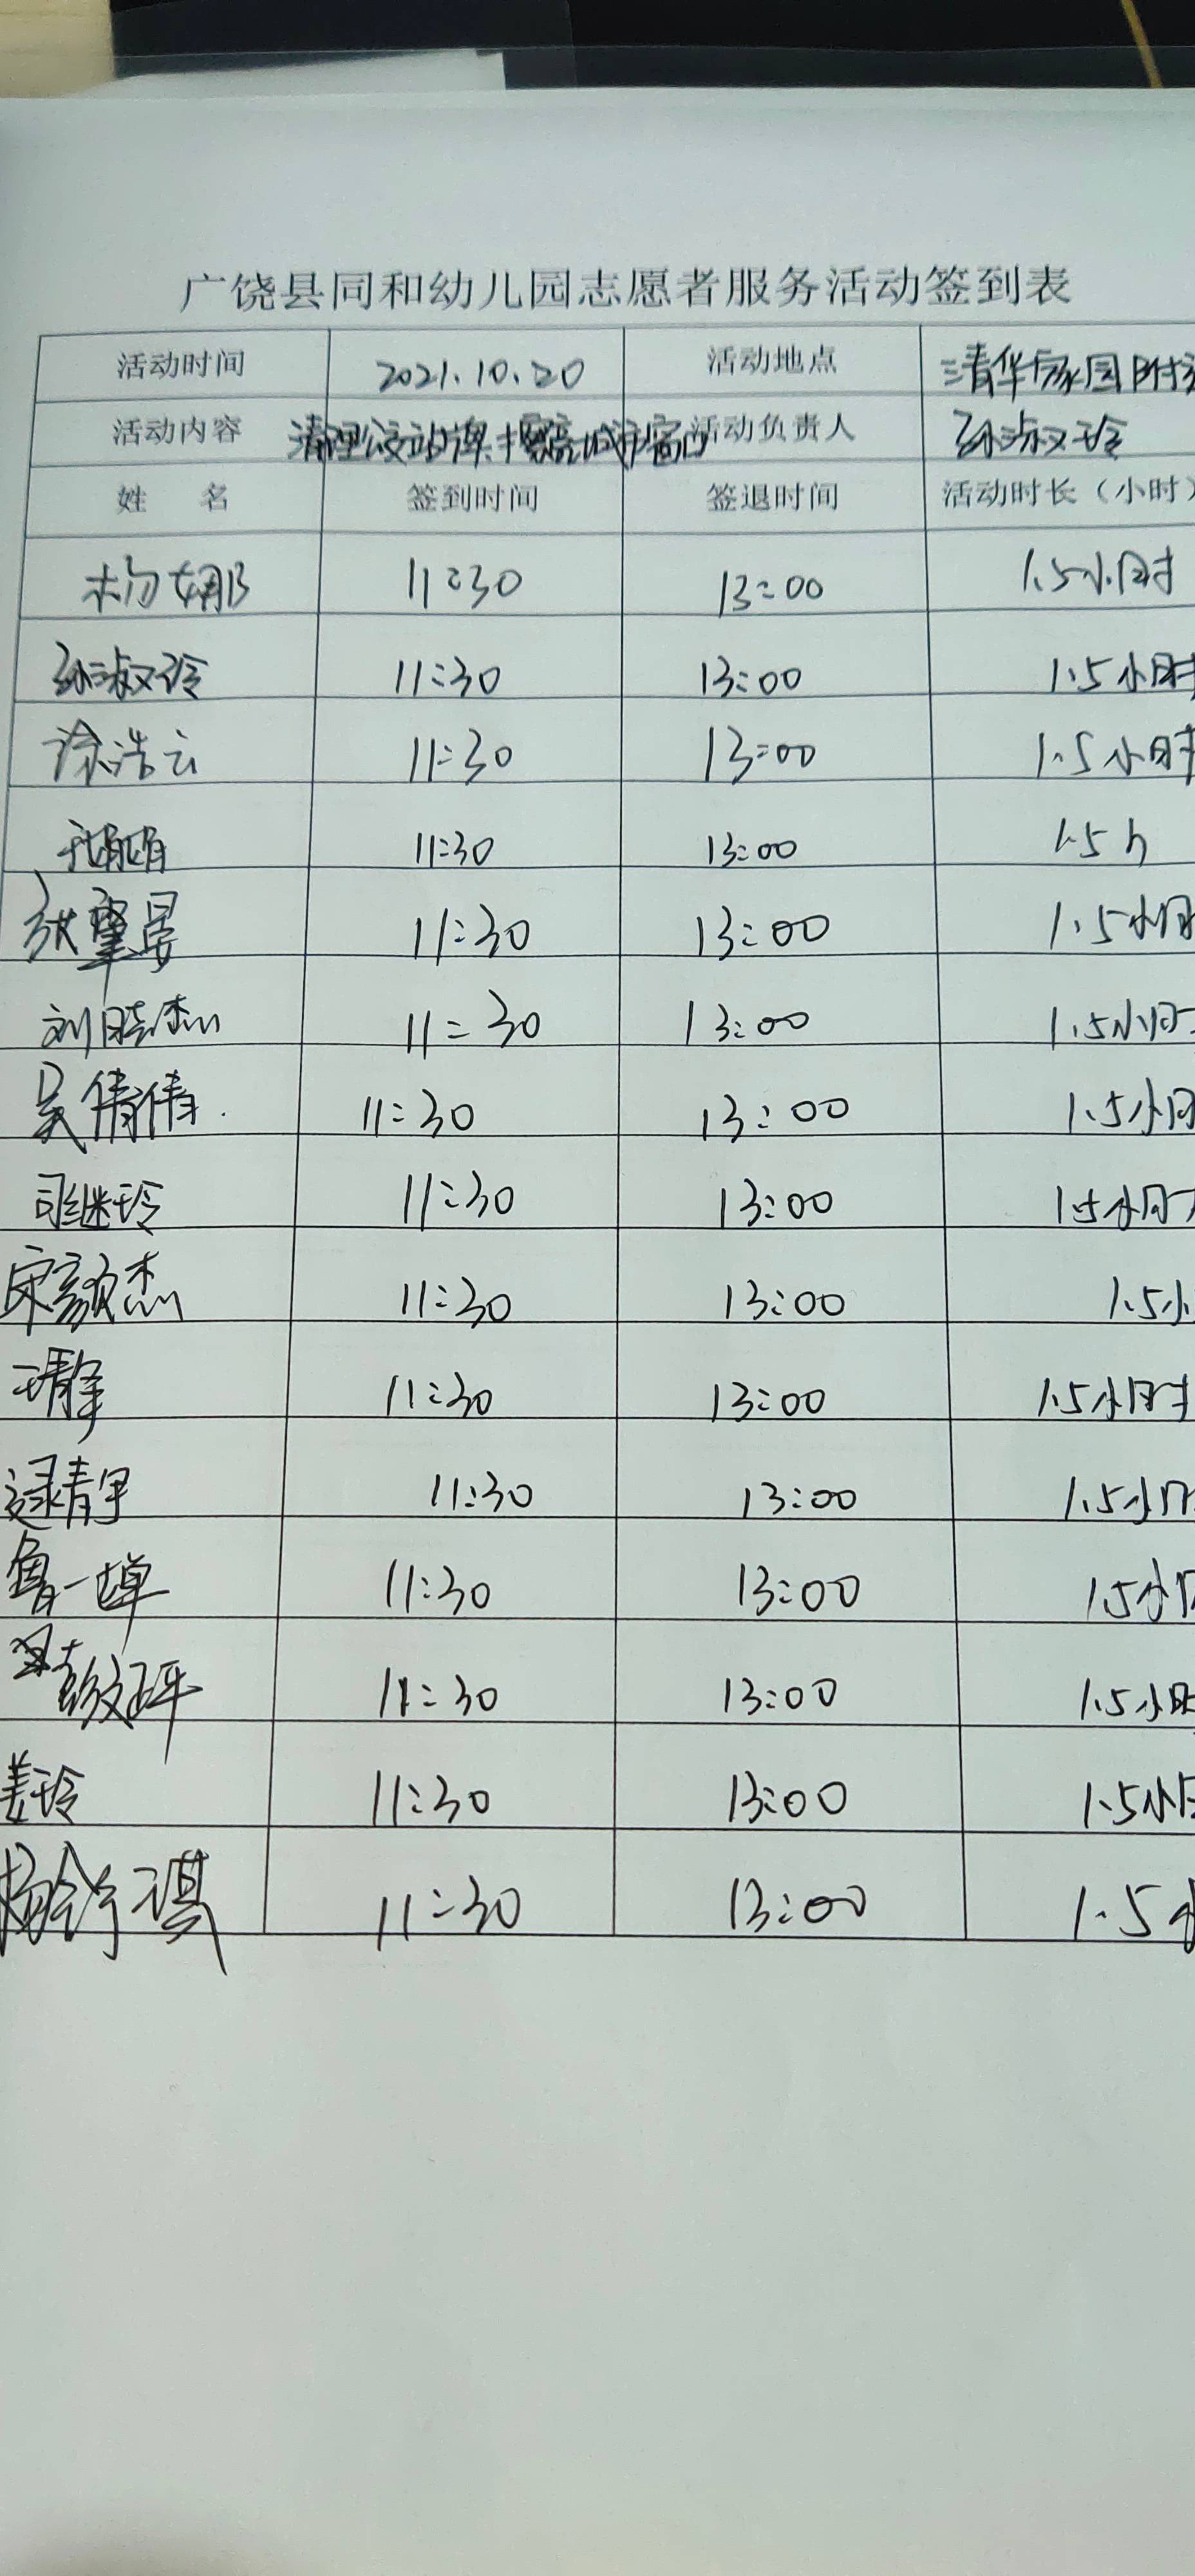 广饶县同和幼儿园志愿者服务活动签到表
活动时间 2021.10.20 活动地点 清华家园附近
活动内容 清理公交站牌,擦亮城市窗口 活动负责人 孙淑玲
姓 名 签到时间 签退时间 活动时长（小时）
杨娜 11:30 13:00 1.5小时
孙淑玲 11:30 13:00 1.5小时
徐浩云 11:30 13:00 1.5小时
11:30 13:00 1.5h
张肇晏 11:30 13:00 1.5小时
刘晓杰 11:30 13:00 1.5小时
吴倩倩 11:30 13:00 1.5小时
司继玲 11:30 13:00 1.5小时
宋颜杰 11:30 13:00 1.5小
王静 11:30 13:00 1.5小时
逯静 11:30 13:00 1.5小时
鲁一婵 11:30 13:00 1.5小时
11:30 13:00 1.5小时
姜玲 11:30 13:00 1.5小时
杨舒琪 11:30 13:00 1.5小